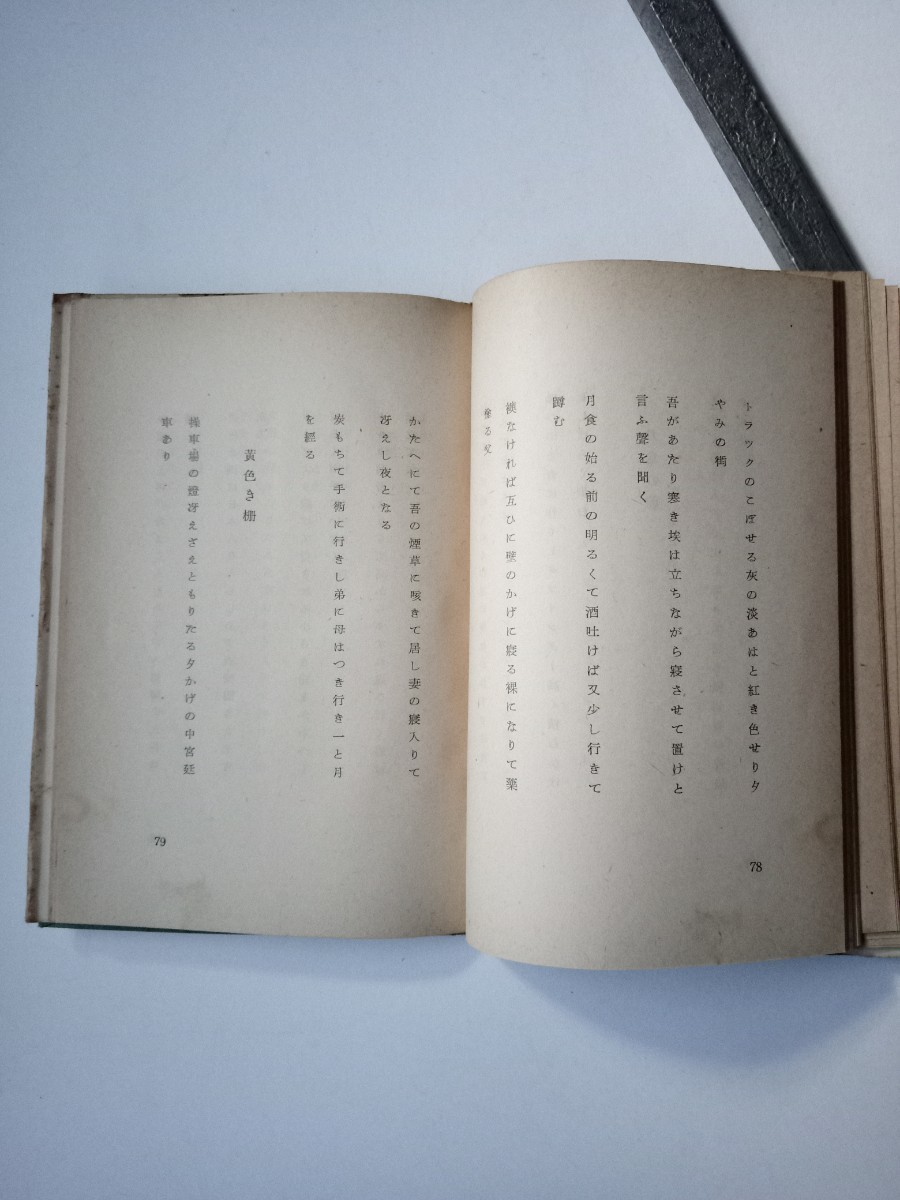 トラックのこぼせる灰の淡あはと紅き色せり夕
やみの獨
吾があたり寒き埃は立ちながら寢させて置けと
言ふ聲を聞く
月食の始る前の明るくて酒吐けば又少し行きて
蹲む
襖なければ互ひに壁のかげに寢る裸になりて藥
塗る父
78
かたへにて吾の煙草に咳きて居し妻の寢入りて
冴えし夜となる
炭もちて手術に行きし弟に母はつき行き一と月
を經る
黃色き柵
操車場の燈冴えざえともりたる夕かげの中宮廷
車あり
79